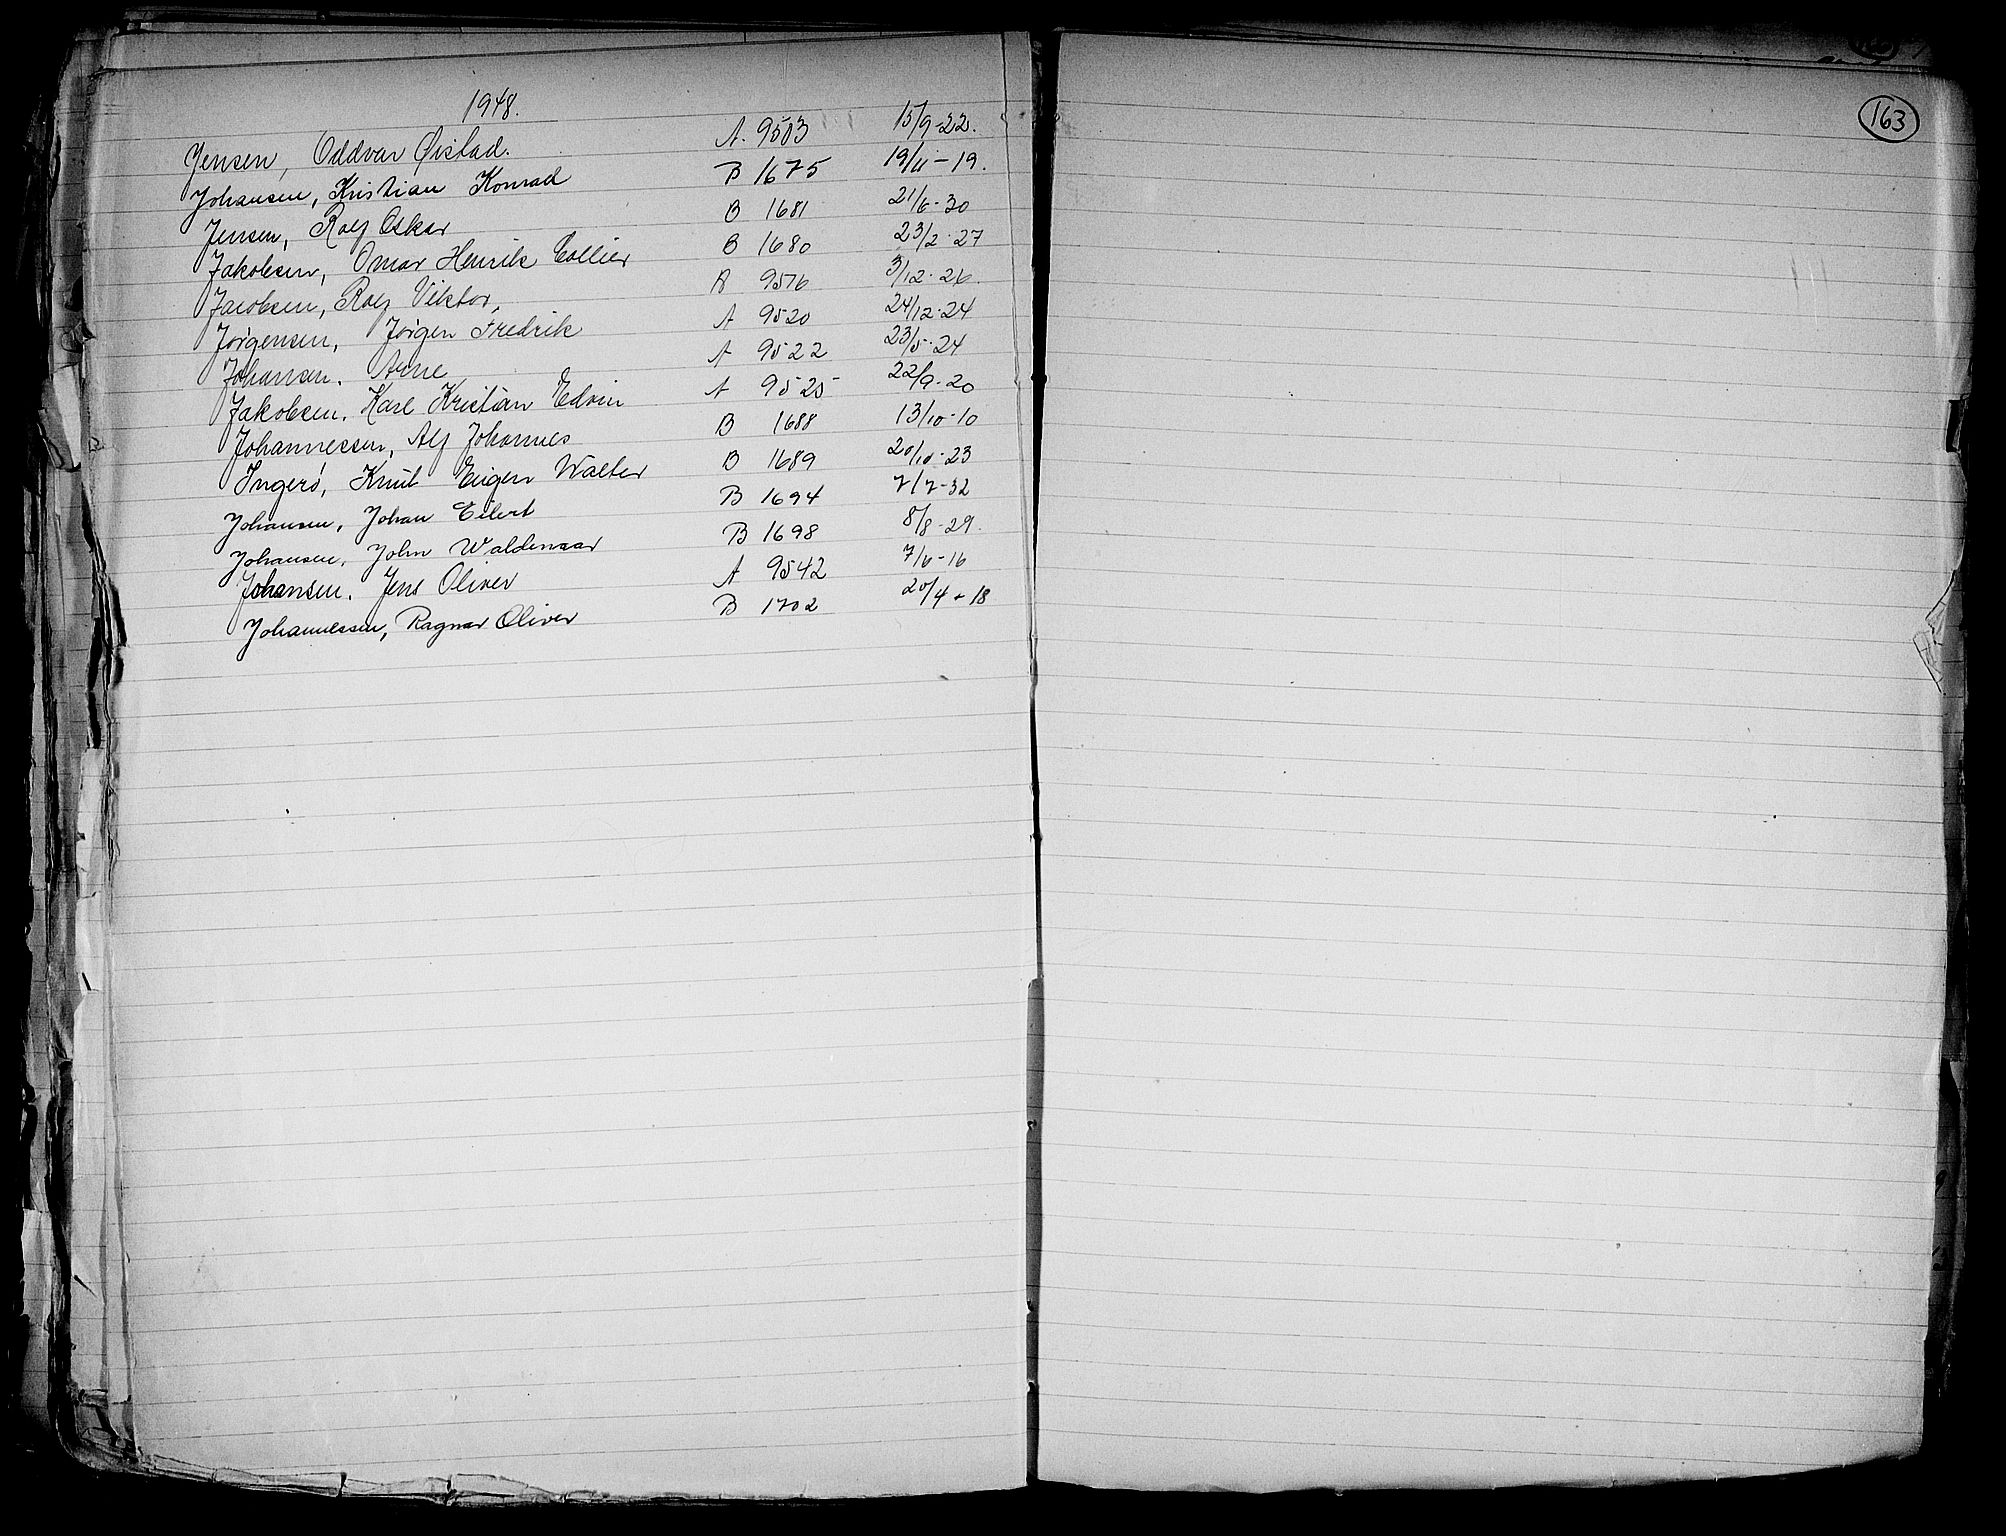 163
1948.
Jensen, Oddvar Øistad. A. 9503 15/9-22.
Johansen, Kristian Konrad B 1675 19/11-19.
Jensen, Rolf Oskar B 1681 21/6-30
Jakobsen, Omar Henrik Collier B 1680 23/2-27
Jacobsen, Rolf Viktor, A 9516 3/12-26.
Jørgensen, Jørgen Fredrik A 9520 24/12-24
Johansen. Arne A 9522 23/5-24
Jakobsen. Karl Kristian Edvin A 9525 22/9-20
Johannessen, Alf Johannes B 1688 13/10-10
Ingerø, Knut Eugen Walter B 1689 20/10-23
Johansen, Johan Eilert B 1694 7/7-32
Johansen. John Waldemar B 1698 8/8-29.
Johansen. Jens Oliver A 9542 7/6-16
Johannessen, Ragnar Oliver B 1702 20/4-18